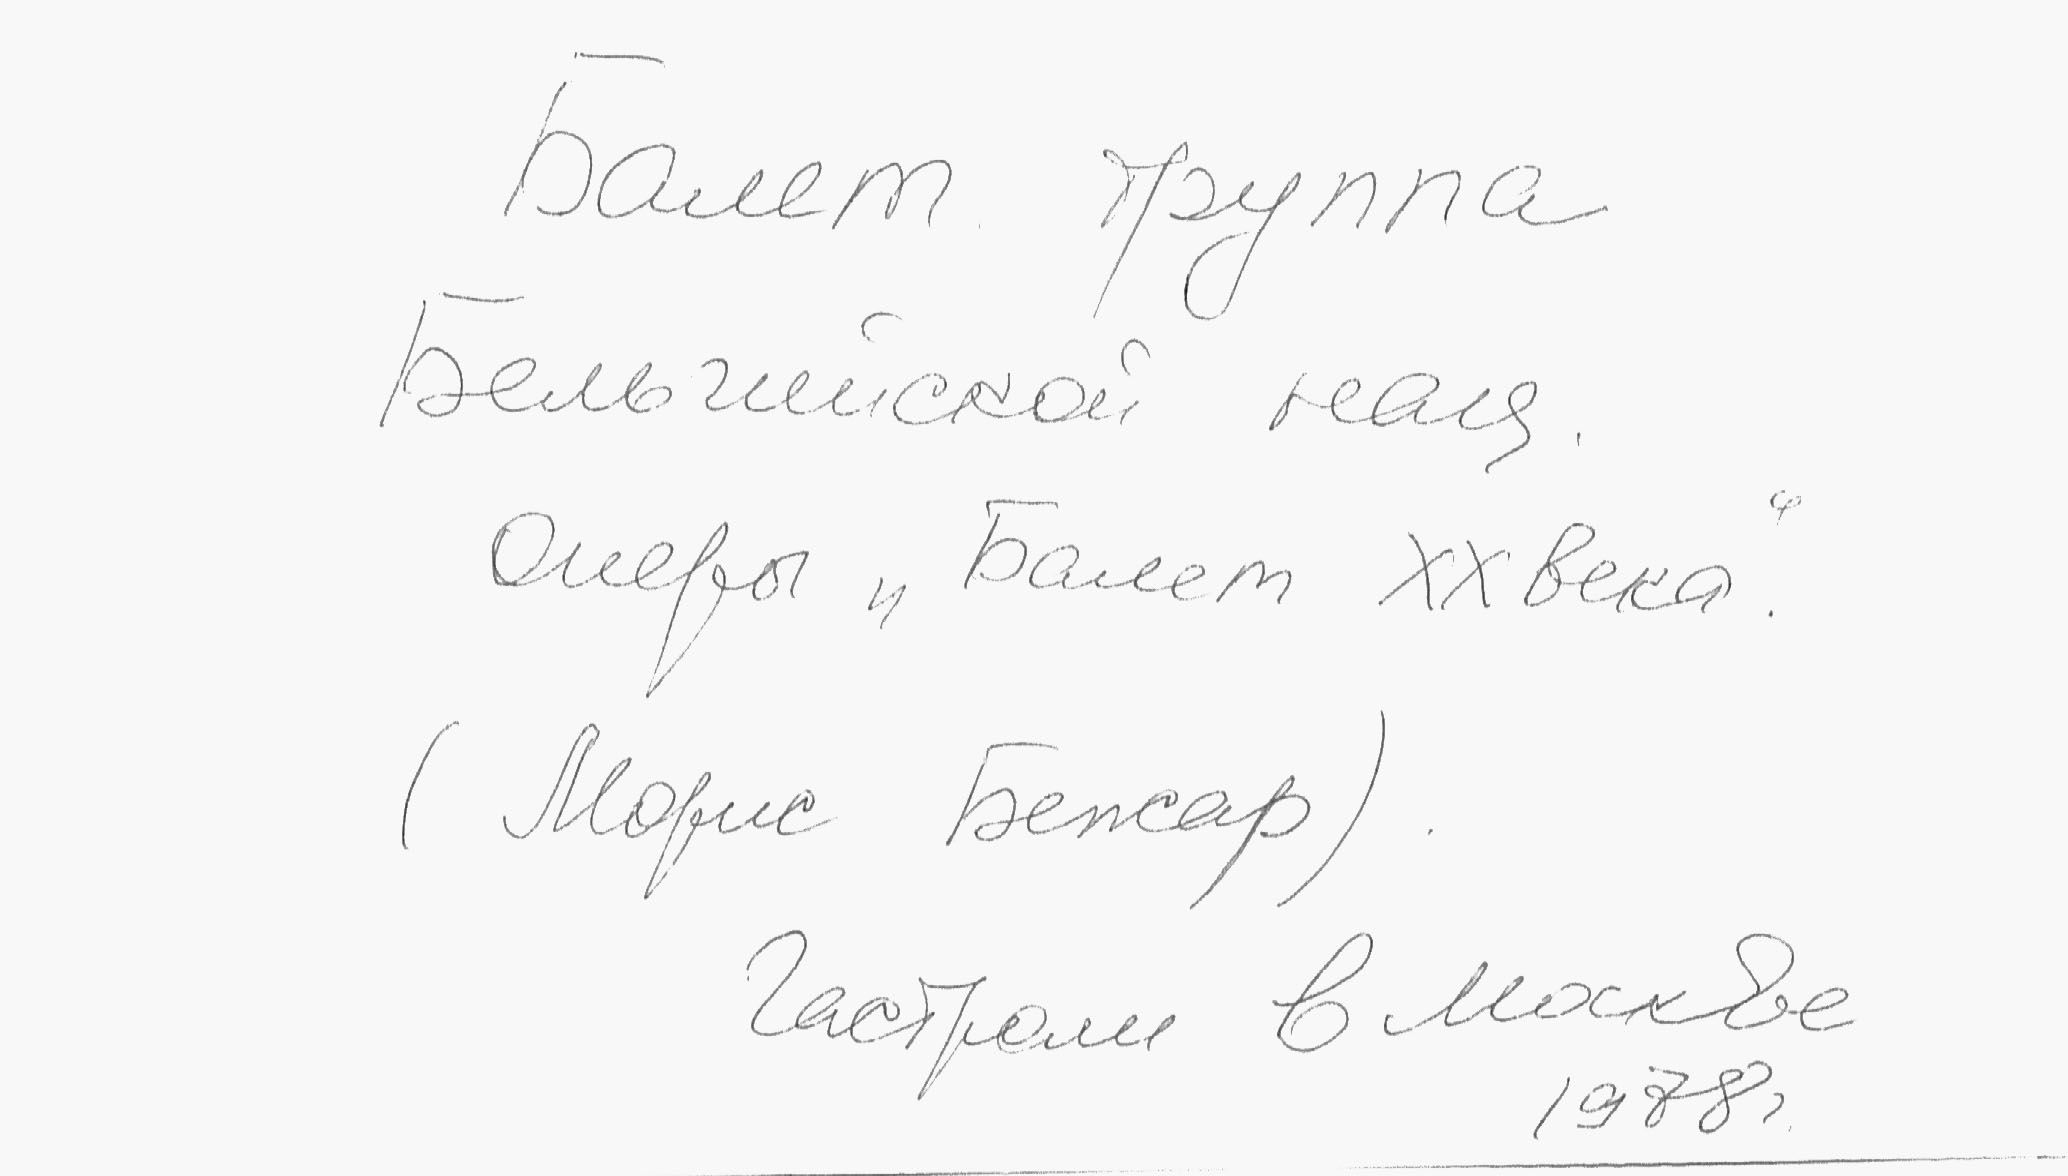 Балет. труппа
Бельгийской нац.
оперы „Балет XX века“.
(Морис Бежар).
Гастроли в Москве
1978г.